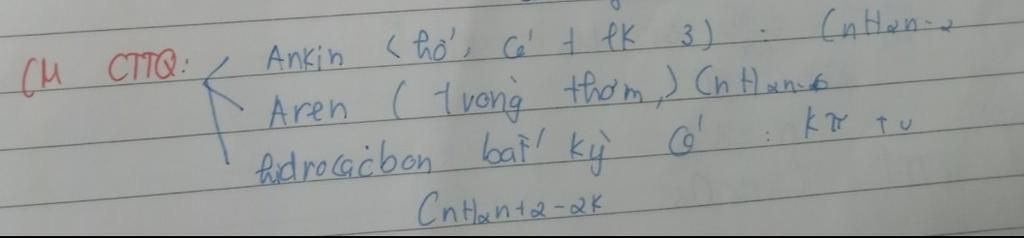 CM CTTQ: Ankin (hở, có 1 lk 3) : CnH2n-2
Aren (1 vòng thơm,) CnH2n-6
hidrocacbon bất kỳ có : kπ + v
CnH2n+2-2k